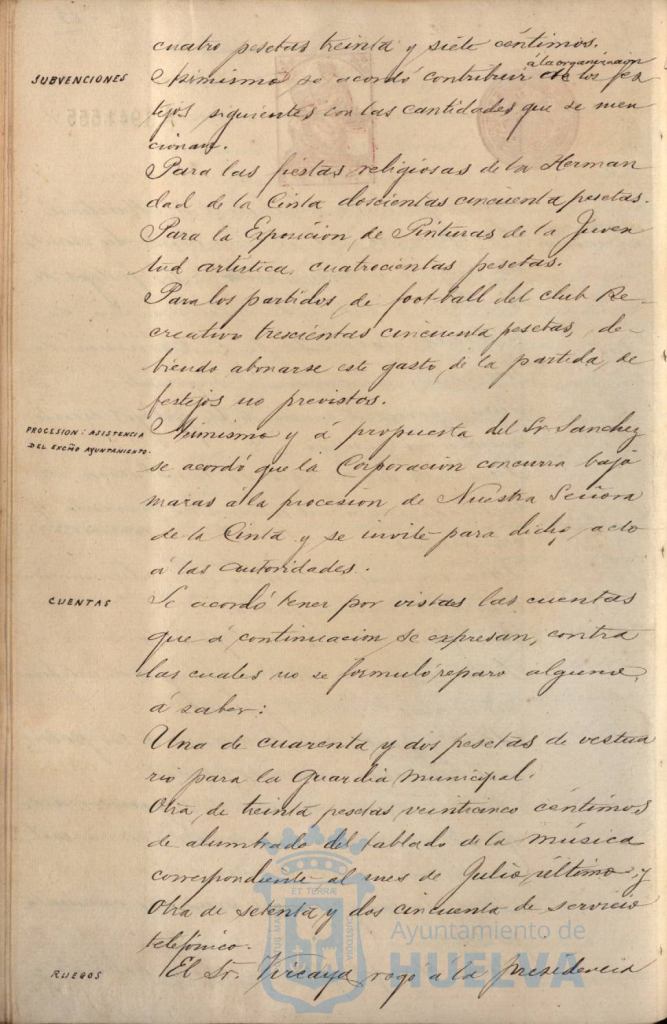 cuatro pesetas treinta y siete céntimos.
SUBVENCIONES
á la organización
Asimismo se acordó contribuir de los fes
tejos siguientes con las cantidades que se men
cionan.
Para las fiestas religiosas de la Herman
dad de la Cinta doscientas cincuenta pesetas.
Para la Exposición de Pinturas de la Juven
tud artística, cuatrocientas pesetas.
Para los partidos de foot-ball del club Re-
creativo trescientas cincuenta pesetas, de-
biendo abonarse este gasto de la partida de
festejos no previstos.
PROCESION: ASISTENCIA
DEL EXCMO AYUNTAMIENTO.
Asimismo y á propuesta del Sr Sanchez
se acordó que la Corporación concurra bajo
mazas á la procesión de Nuestra Señora
de la Cinta y se invite para dicho acto
á las autoridades.
CUENTAS
Se acordó tener por vistas las cuentas
que á continuacion se expresan, contra
las cuales no se formuló reparo alguno,
á saber:
Una de cuarenta y dos pesetas de vestua
rio para la Guardia municipal.
Otra de treinta pesetas veinticinco céntimos
de alumbrado del tablado de la música
correspondiente al mes de Julio último y
Otra de setenta y dos cincuenta de servicio
telefónico.
RUEGOS
El Sr. Vizcaya rogó a la presidencia
ET TERRÆ
CUSTODIA
Ayuntamiento de
HUELVA